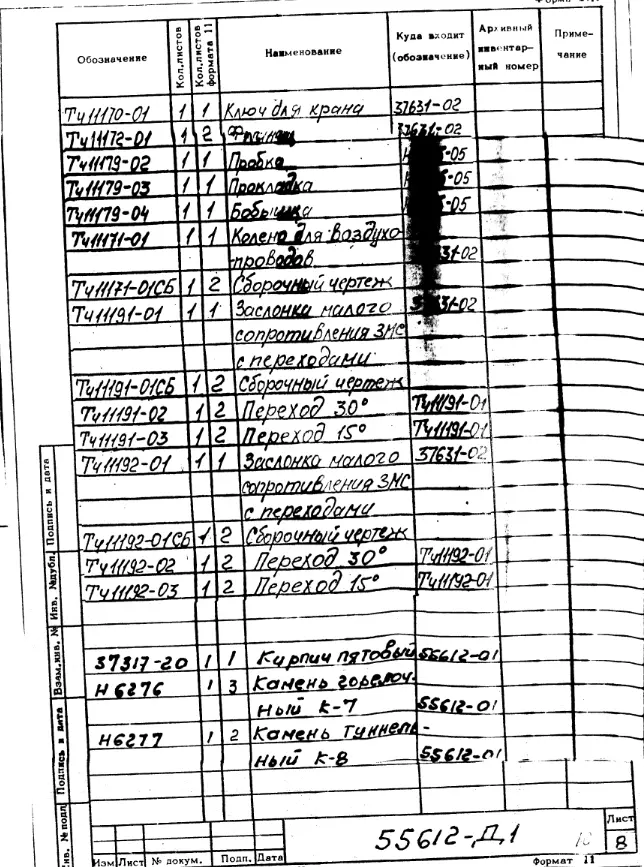 Обозначение Кол.листов Кол.листов формата 11 Наименование Куда входит (обозначение) Архивный инвентар-ный номер Приме-чание
Тч11170-01 1 1 Ключ для крана 37631-02
Тч11172-01 1 2 Фланец 37631-02
Тч11179-02 1 1 Пробка -05
Тч11179-03 1 1 Прокладка -05
Тч11179-04 1 1 Бобышка -05
Тч11171-01 1 1 Колено для воздухо-
проводов 37631-02
Тч11171-01СБ 1 2 Сборочный чертеж
Тч11191-01 1 1 Заслонка малого 37631-02
сопротивления ЗМС
с переходами
Тч11191-01СБ 1 2 Сборочный чертеж
Тч11191-02 1 2 Переход 30° Тч11191-01
Тч11191-03 1 2 Переход 15° Тч11191-01
Тч11192-01 1 1 Заслонка малого 37631-02
сопротивления ЗМС
с переходами
Тч11192-01СБ 1 2 Сборочный чертеж
Тч11192-02 1 2 Переход 30° Тч11192-01
Тч11192-03 1 2 Переход 15° Тч11192-01
37317-20 1 1 Кирпич пятовый 55612-01
Н6276 1 3 Камень горелоч-
ный К-7 55612-01
Н6277 1 2 Камень туннель-
ный К-8 55612-01
Подпись и дата
Инв. №дубл.
Взам.инв. №
Подпись и дата
Инв. №подл
55612-Д1
Лист
8
Изм Лист № докум. Подп. Дата
Формат 11